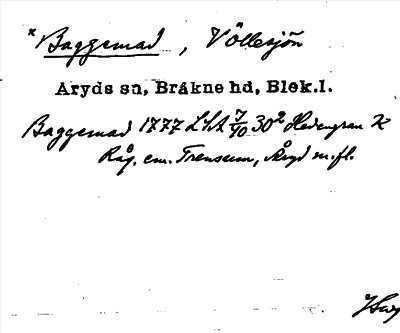 × Baggemad, Völlesjön
Aryds sn, Bräkne hd, Blek.l.
Baggemad 1777 LSA 7/40 30² Hedengran K
Råg. em. Trensum, Åryd m.fl.